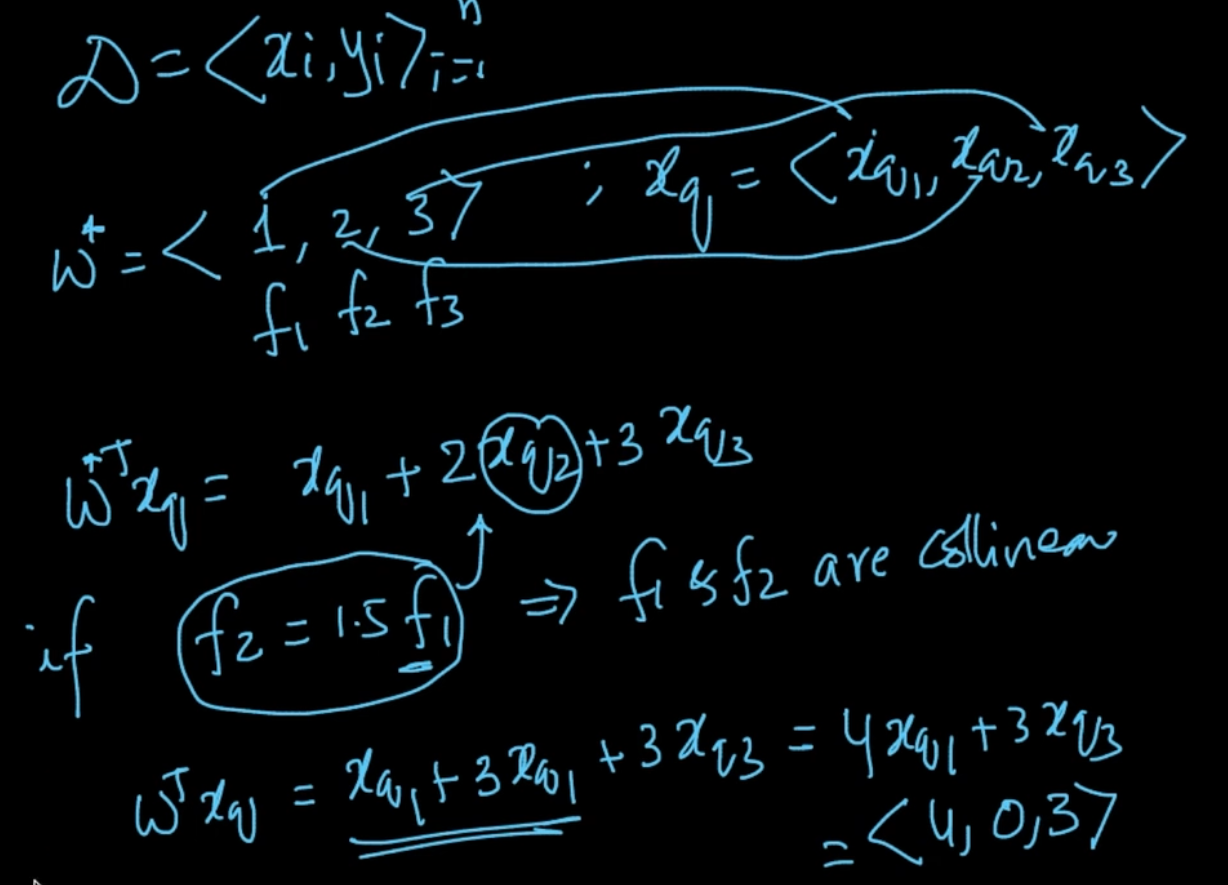 D = <xi, yi> i=1 n
w* = < 1, 2, 3> ; xq = <xq1, xq2, xq3>
f1 f2 f3
w*T xq = xq1 + 2 xq2 + 3 xq3
if f2 = 1.5 f1 ⇒ f1 & f2 are collinear
wT xq = xq1 + 3 xq1 + 3 xq3 = 4 xq1 + 3 xq3
= <4, 0, 3>